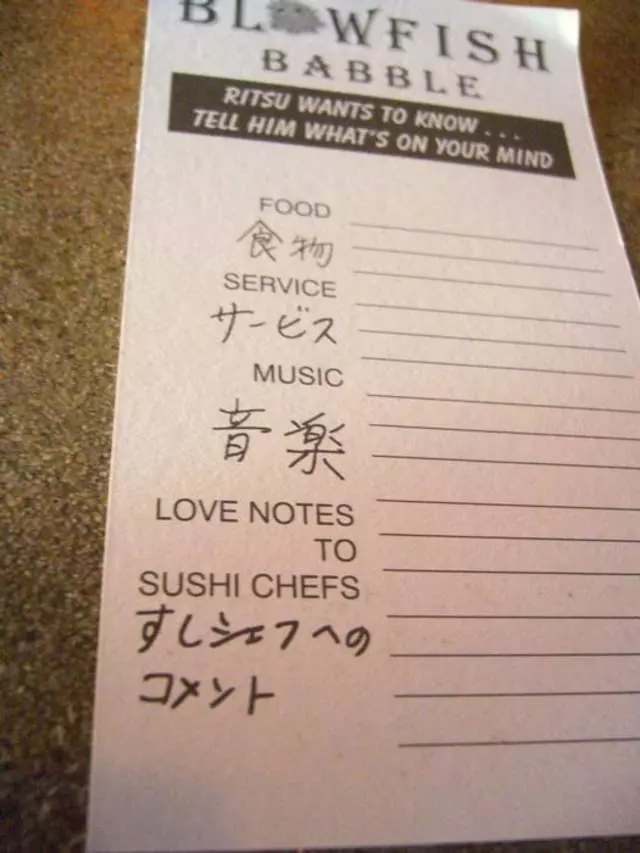 BLOWFISH
BABBLE
RITSU WANTS TO KNOW . . .
TELL HIM WHAT'S ON YOUR MIND
FOOD
食物
SERVICE
サービス
MUSIC
音楽
LOVE NOTES
TO
SUSHI CHEFS
すしシェフへの
コメント